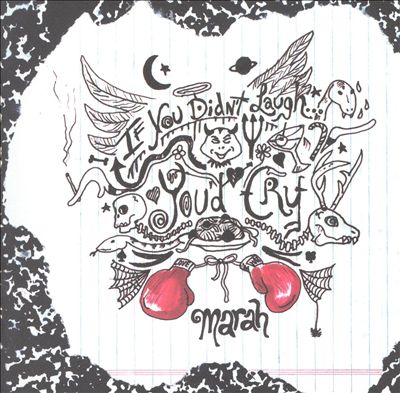 If You Didn't Laugh...
You'd Cry
marah